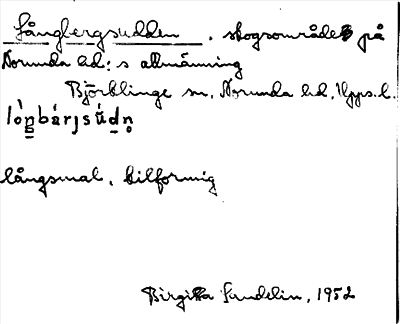 Långbergsudden, skogsområde på
Norunda hd:s allmänning
Björklinge sn, Norunda hd, Upps. l.
långsmal, kilformig
Birgitta Sundelin, 1952